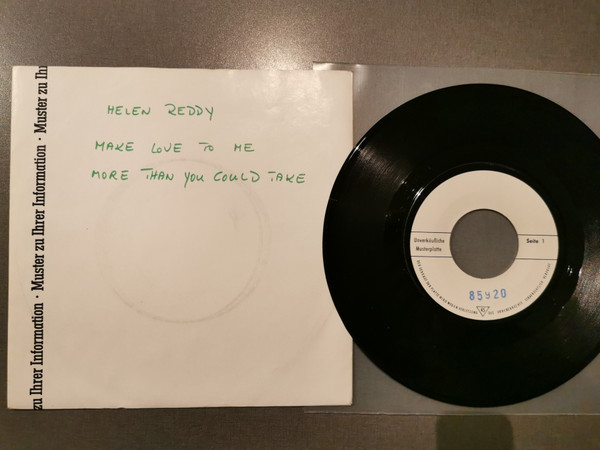 HELEN REDDY
MAKE LOVE TO ME
MORE THAN YOU COULD TAKE
zu Ihrer Information · Muster zu Ihrer Information · Muster zu Ih
Unverkäufliche
Musterplatte
Seite 1
85920